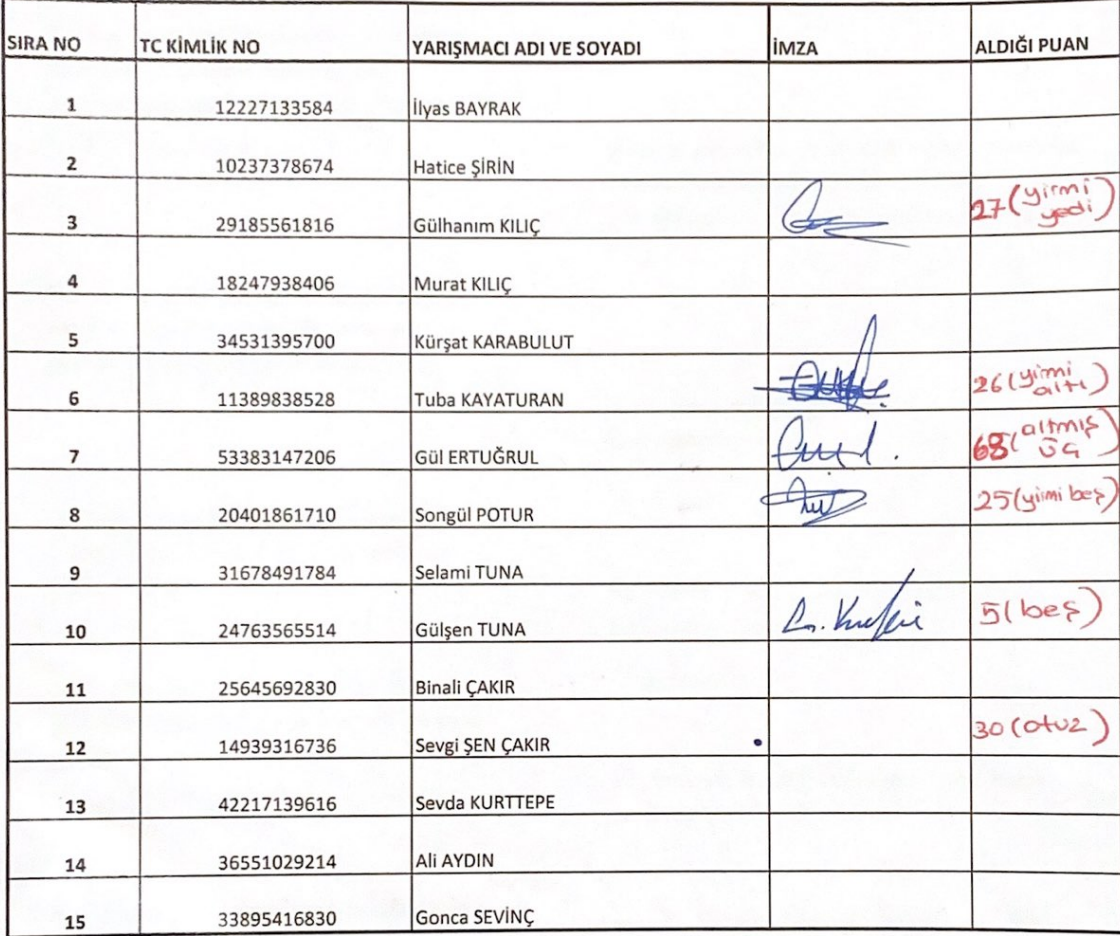 SIRA NO TC KİMLİK NO YARIŞMACI ADI VE SOYADI İMZA ALDIĞI PUAN
1 12227133584 İlyas BAYRAK
2 10237378674 Hatice ŞİRİN
3 29185561816 Gülhanım KILIÇ 27 (yirmi yedi)
4 18247938406 Murat KILIÇ
5 34531395700 Kürşat KARABULUT
6 11389838528 Tuba KAYATURAN 26 (yirmi altı)
7 53383147206 Gül ERTUĞRUL 63 (altmış üç)
8 20401861710 Songül POTUR 25 (yirmi beş)
9 31678491784 Selami TUNA
10 24763565514 Gülşen TUNA 5 (beş)
11 25645692830 Binali ÇAKIR
12 14939316736 Sevgi ŞEN ÇAKIR 30 (otuz)
13 42217139616 Sevda KURTTEPE
14 36551029214 Ali AYDIN
15 33895416830 Gonca SEVİNÇ